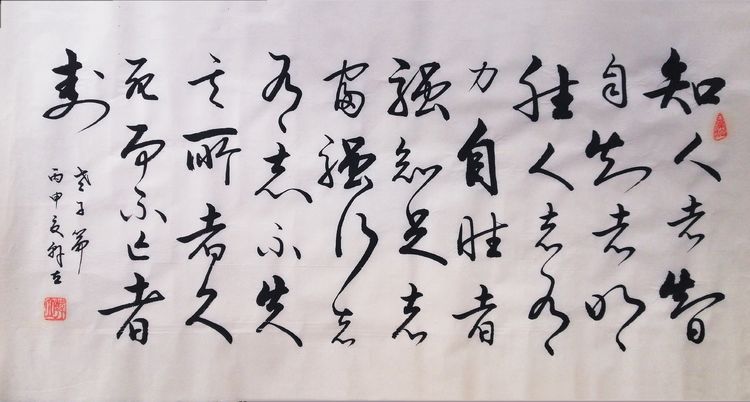 知人者智
自知者明
胜人者有
力自胜者
强知足者
富强行者
有志不失
其所者久
死而不亡者
寿
老子
丙申夏